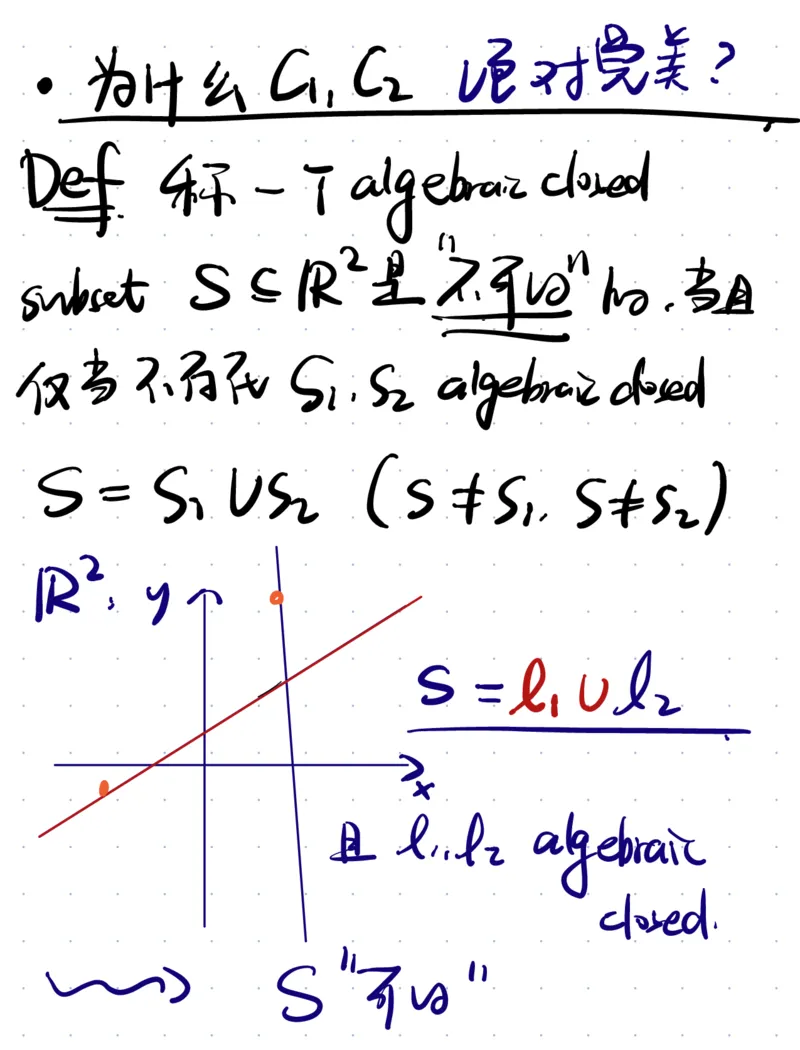 • 为什么 C₁, C₂ 绝对完美?
Def 称一个 algebraic closed
subset S ⊆ ℝ² 是 "不可约" 的, 当且
仅当不存在 S₁, S₂ algebraic closed
S = S₁ ∪ S₂ (S ≠ S₁, S ≠ S₂)
ℝ², y
S = l₁ ∪ l₂
x
且 l₁, l₂ algebraic
closed.
⇝ S "可约"